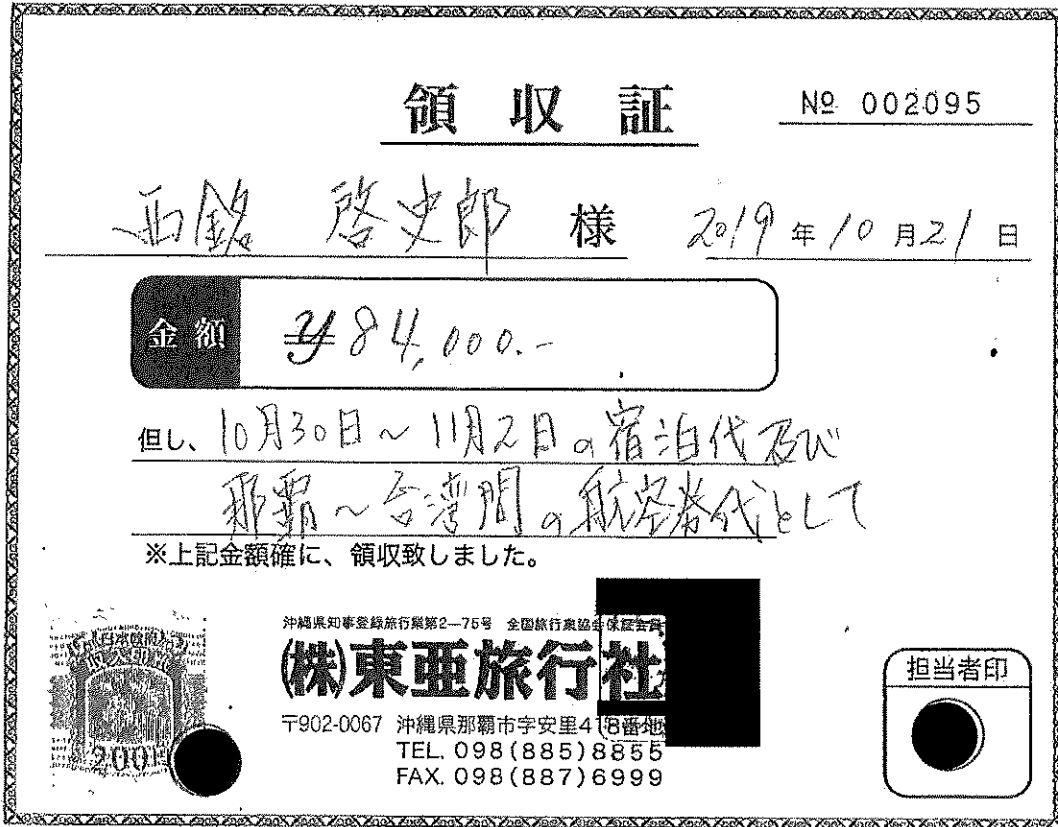 領収証
№ 002095
西銘 啓史郎 様
2019年10月21日
金額 ¥84,000.-
但し、10月30日~11月2日の宿泊代及び
那覇~台湾間の航空券代として
※上記金額確に、領収致しました。
沖縄県知事登録旅行業第2—75号 全国旅行業協会保証会員
(株)東亜旅行社
〒902-0067 沖縄県那覇市字安里418番地
TEL. 098(885)8855
FAX. 098(887)6999
担当者印
200